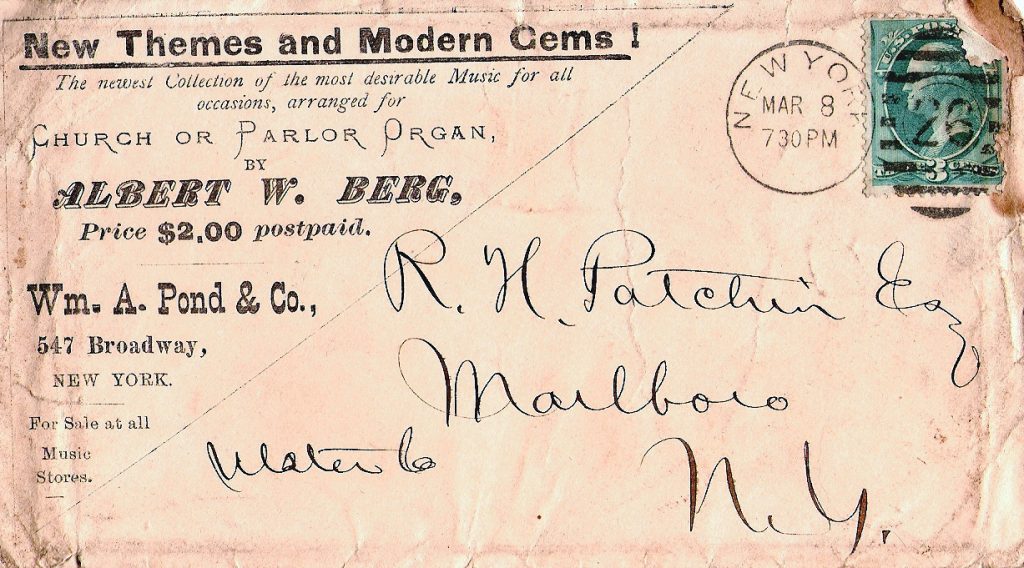 New Themes and Modern Gems !
The newest Collection of the most desirable Music for all
occasions, arranged for
CHURCH OR PARLOR ORGAN,
BY
ALBERT W. BERG,
Price $2.00 postpaid.
Wm. A. Pond & Co.,
547 Broadway,
NEW YORK.
For Sale at all
Music
Stores.
NEW YORK
MAR 8
730PM
R. H. Patchin Esq
Marlboro
Ulster Co
N. Y.